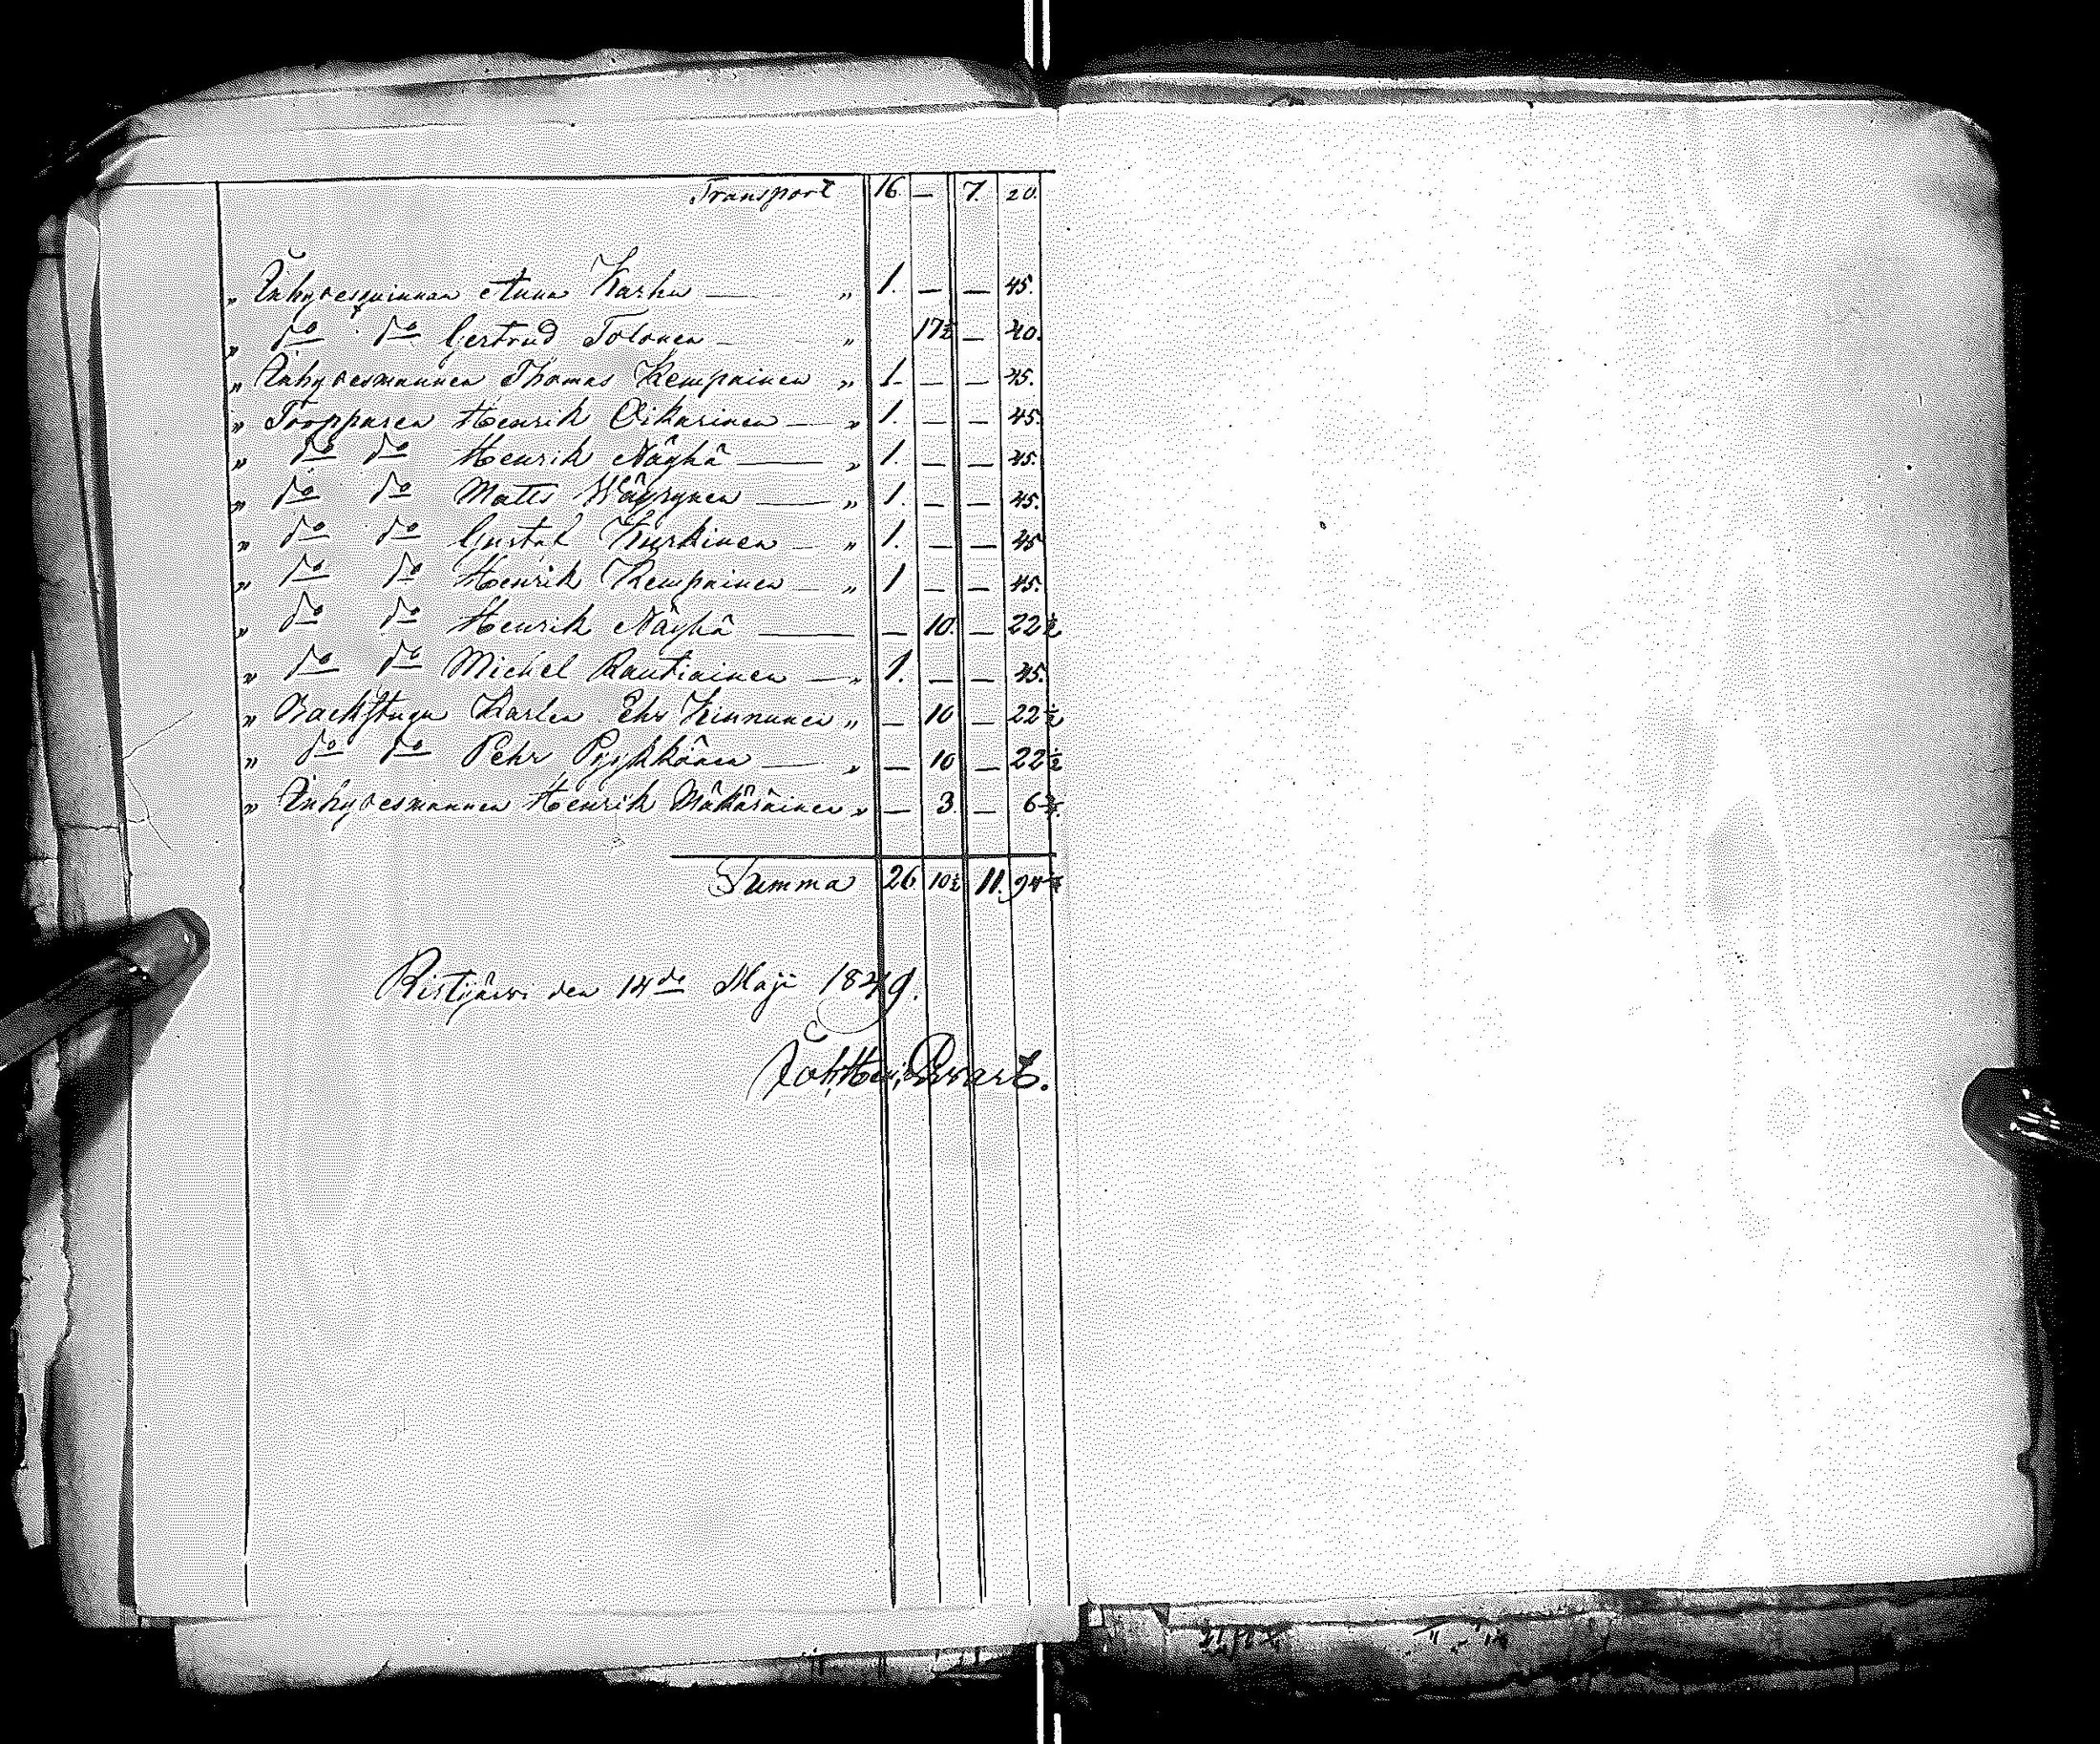 Transport 16. — 7. 20.
„ Inhysesqvinnan Anna Karhu — „ 1. — — 45.
„ do do Gertrud Tolonen — „ 17½ — 40.
„ Inhysesmannen Thomas Kempainen „ 1. — — 45.
„ Torpparen Henrik Oikarinen — „ 1. — — 45.
„ do do Henrik Näyhä — „ 1. — — 45.
„ do do Matts Wäyrynen — „ 1. — — 45.
„ do do Gustaf Kurkinen — „ 1. — — 45
„ do do Henrik Kempainen — „ 1 — — 45.
„ do do Henrik Näyhä — — 10. — 22½
„ do do Michel Rautiainen — „ 1. — — 45.
„ Backstugu Karlen Ehr Kinnunen „ — 10 — 22½
„ do do Pehr Pyykkönen — „ — 10 — 22½
„ Inhysesmannen Henrik Mäkäräinen „ — 3. — 6¾.
Summa 26 10½ 11. 94¾
Ristijärvi den 14de Maji 1849.